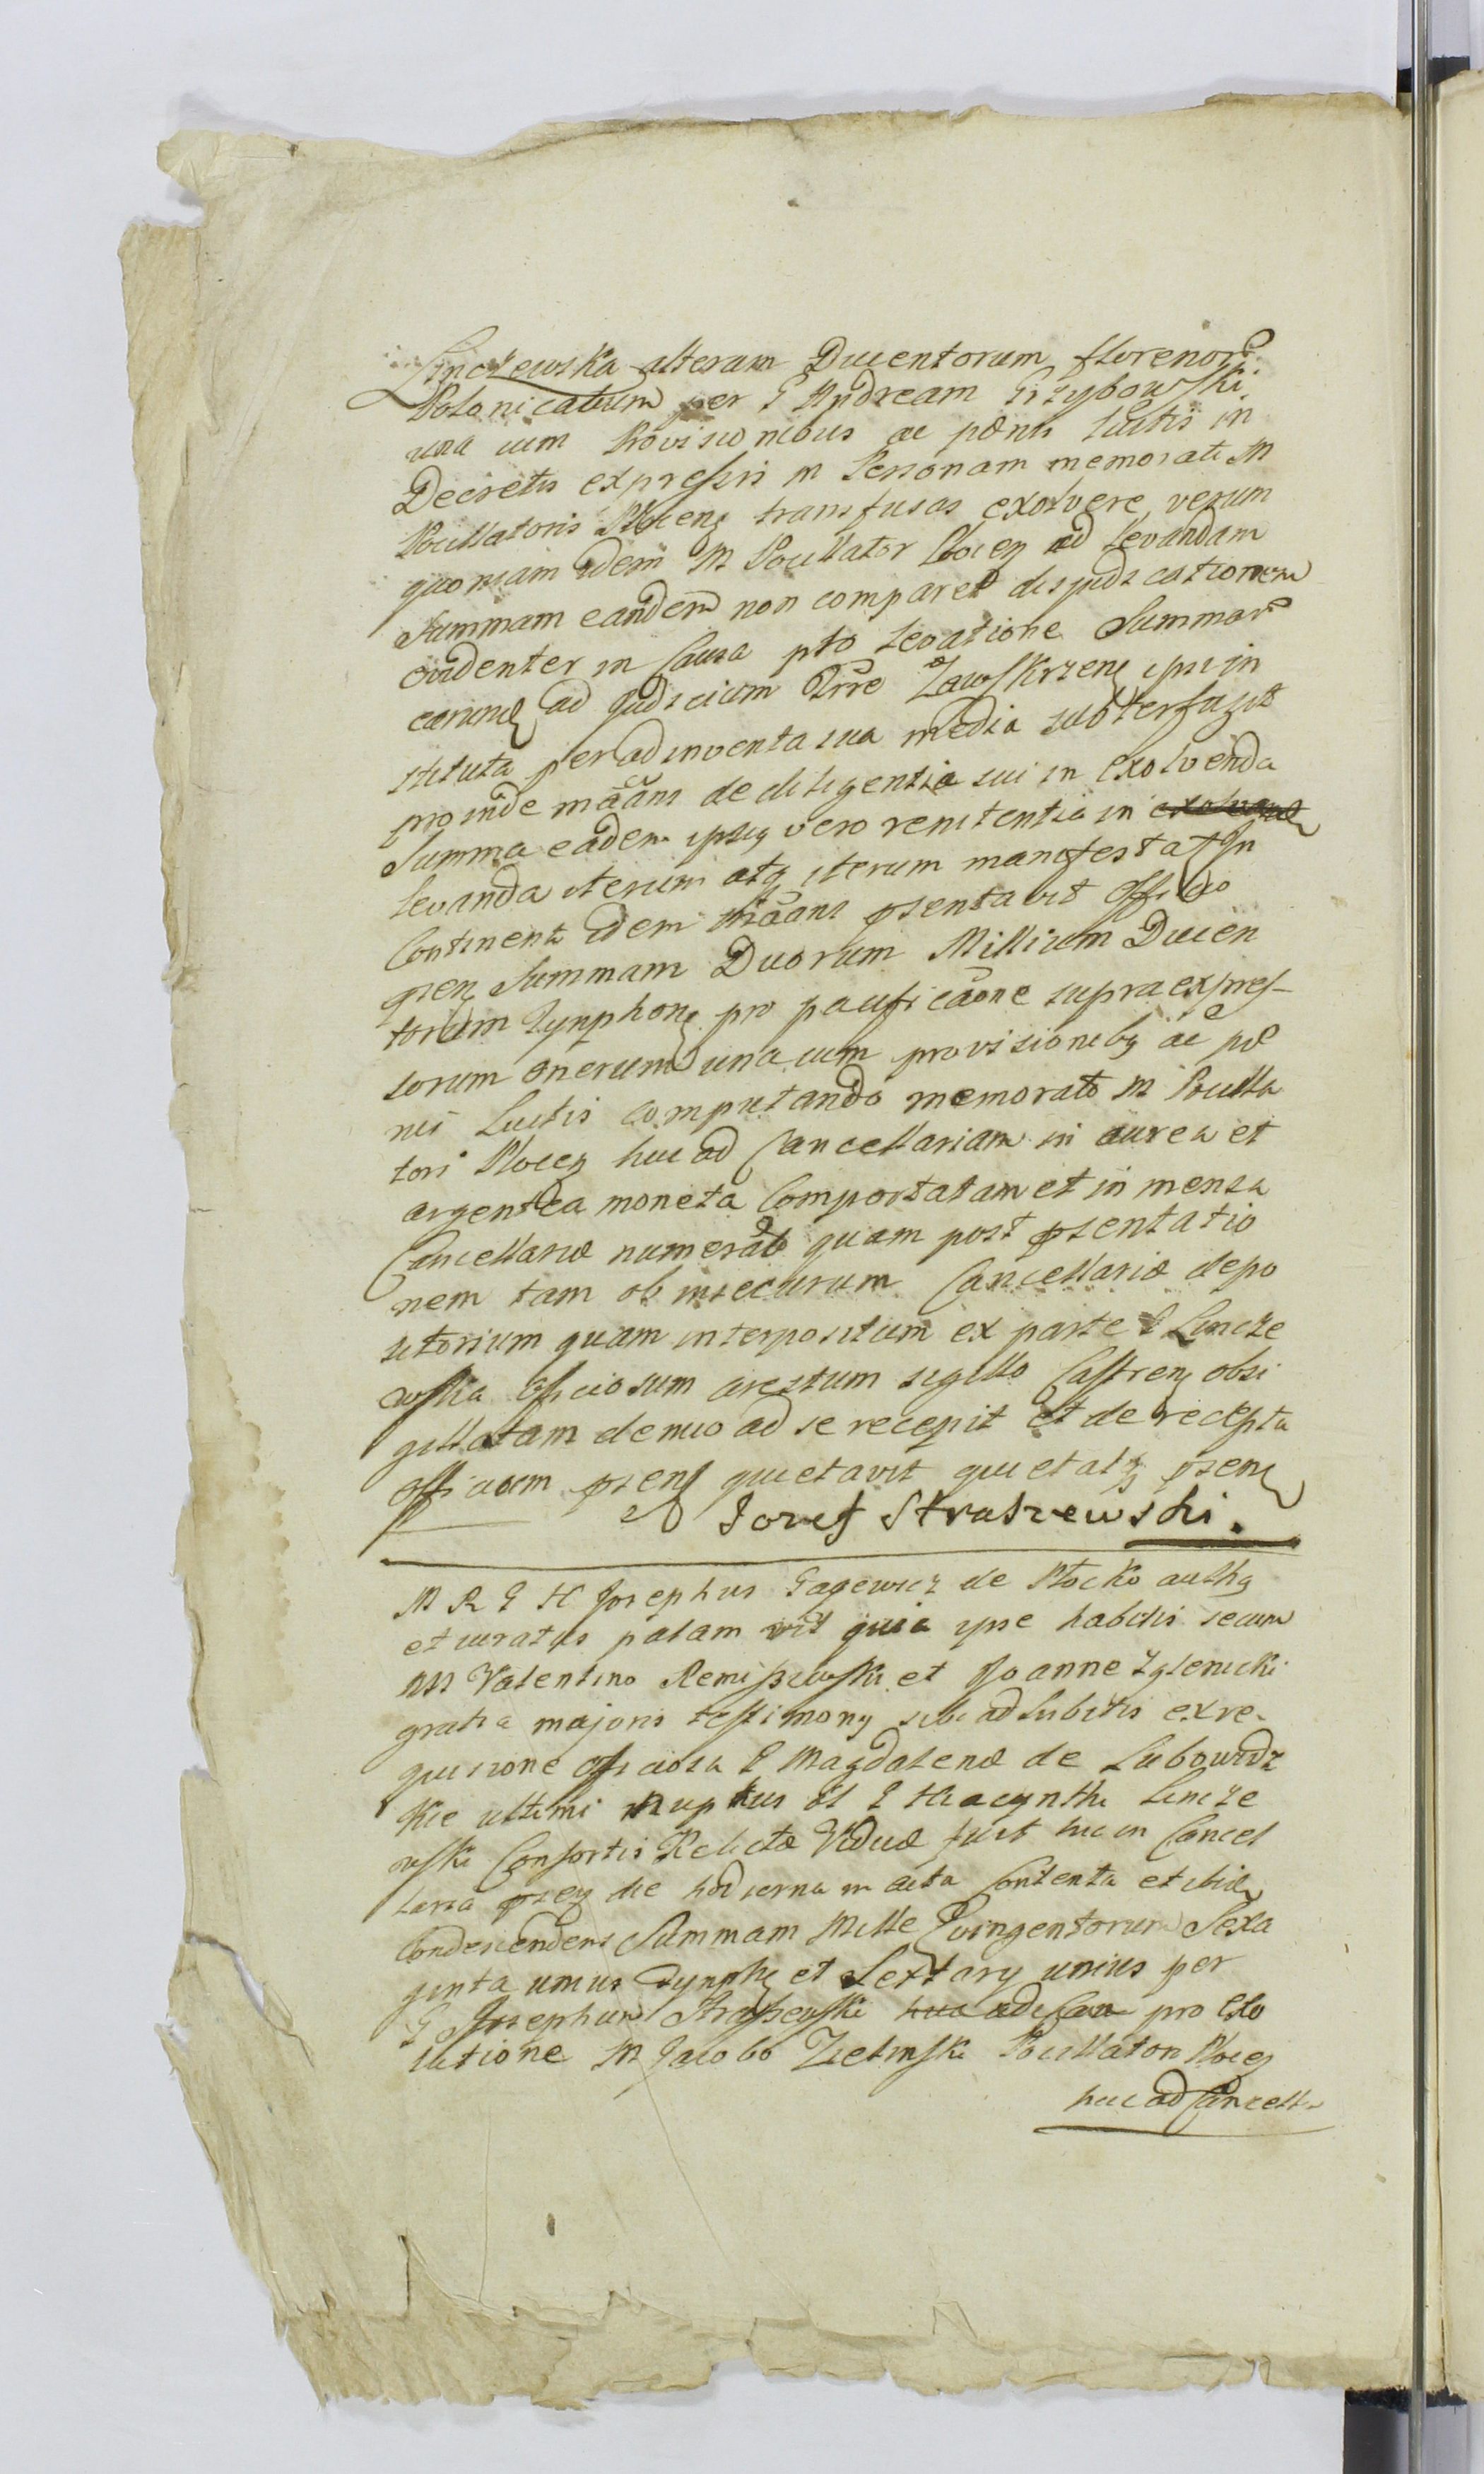 Linczewska alteram Ducentorum florenor
Polonicalium per G Andream Grzybowski
una cum Provisionibus ac pœnis luitis in
Decretis expressis in Personam memorati M
Pocillatoris Plocens transfusas exolvere verum
quoniam idem M Pocillator Plocen ad levandam
Summam eandem non comparet disjudicationem
evidenter in Causa pto levatione Summar
earund ad Judicium Trre Zawskrzens ipsi in
stituta per adinventa sua media subterfugit
proinde mãans de diligentia sui in exolvenda
Summa eadem ipsius vero renitentia in
levanda iterum atq iterum manifestat In
Continenti idem mãans psentavit Officio
psen Summam Duorum Millium Ducen
torum Tynphon pro pacificãone supraexpres-
sorum onerum una cum provisionibq ac pœ
nis Luitis computando memorato M Pocilla
tori Plocen huc ad Cancellariam in aurea et
argentea moneta Comportatam et in mensa
Cancellariæ numerat quam post psentatio
nem tam ob insecurum Cancellariæ depo
sitorium quam interpositum ex parte G Lincze
wska Officiosum arestum sigillo Castren obsi
gillatam denuo ad se recepit et de recepta
officium psens quietavit quietatq psent
Jozef Straszewski.
M R G H Josephus Gagewicz de Płocko authq
et juratus palam rvit quia ipse habitis secum
NN Valentino Remiszewski et Joanne Zglenicki
gratia majoris testimony sibi adhibitis ex re-
quisione officiosa G Magdalenæ de Lubowidz
kie ultimi nuptus ol G Hiacynthi Lincze
wski Consortis Relictæ Viduæ fuit hic in Cancel
laria psen die hodierna in acta Contenta et ibid
Condescendens Summam Mille Quingentorum Sexa
ginta unius Tynphq et Sextary unius per
G Josephum Straszewski huc ad Can pro Exo
lutione M Jacobo Zielinski Pocillatori Plocen
huc ad Cancella